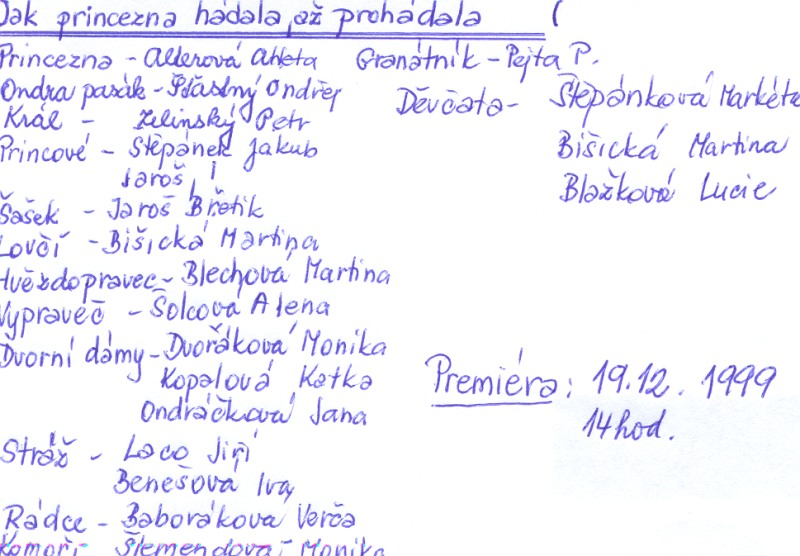 Jak princezna hádala, až prohádala (
Princezna - Adlerová Aneta
Ondra pasák - Šťastný Ondřej
Král - Zelinský Petr
Princové - Štěpánek Jakub
Jaroš J
Šašek - Jaroš Břetik
Lovčí - Bišická Martina
Hvězdopravec - Blechová Martina
Vypraveč - Šolcová Alena
Dvorní dámy - Dvořáková Monika
Kopalová Katka
Ondráčková Jana
Stráž - Laco Jiří
Benešová Iva
Rádce - Baboráková Verča
Komoří Šlemendová Monika
Granátník - Pejta P.
Děvčata - Štěpánková Markéta
Bišická Martina
Blažková Lucie
Premiéra: 19.12. 1999
14hod.